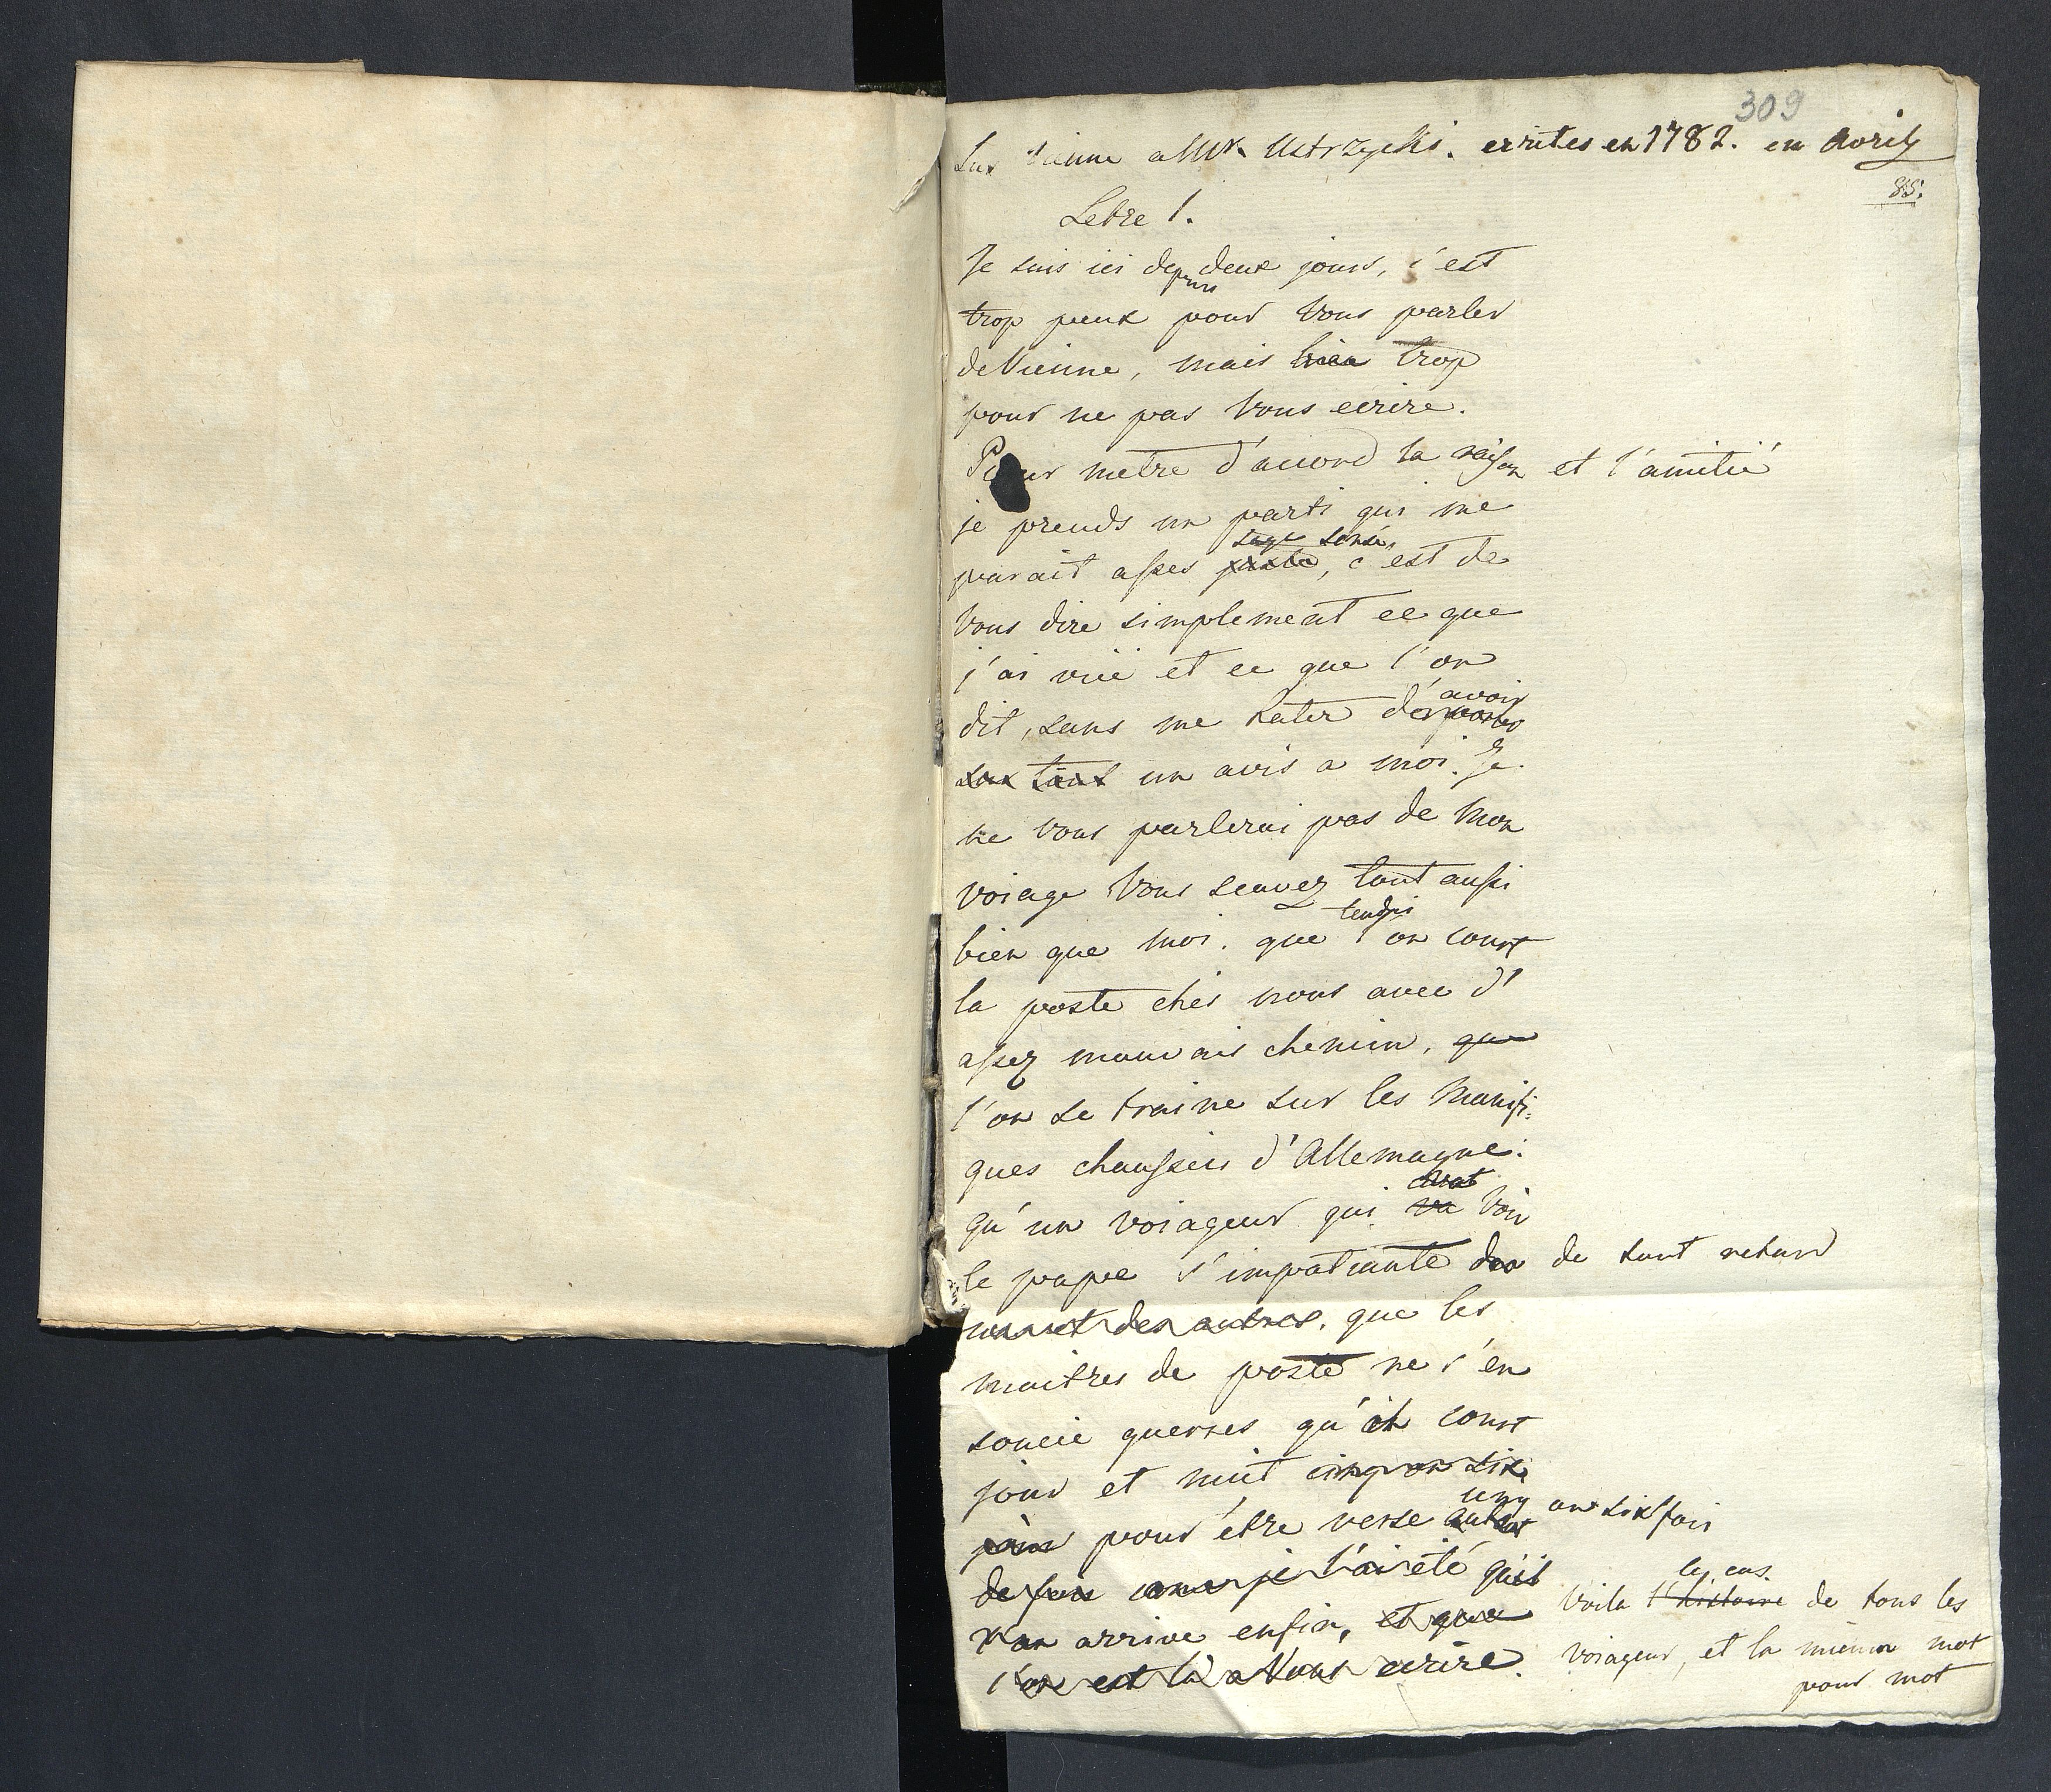 309
Sur Vienne a Mr. Ustrzycki. ecrites en 1782. en Avril
88.
Letre 1.
Je suis ici depuis deux jours, c'est
trop peux pour vous parler
de Vienne, mais bien trop
pour ne pas vous ecrire.
Pour metre d'accord la raison et l'amitié
je prends un parti qui me
sage sensé,
parait asses juste, c'est de
vous dire simplement ce que
j'ai vüe et ce que l'on
avoir
dit, sans me hater d'
sur tout un avis a moi. Je
ne vous parlerai pas de mon
voiage vous scavez tout aussi
tendis
bien que moi. que l'on court
la poste chés nous avec d'
assez mauvais chemin, que
l'on se traine sur les manifi-
ques chaussées d'Allemagne.
qu'un voiageur qui va voir
le pape s'impatiante de tout retard
des autres. que les
maitres de poste ne s'en
soucie guerres qu'on court
jour et nuit cinq ou six
cinq ou six fois
pour être verse autant
de fois je l'ai été qu'il
le cas.
l'on arrive enfin, et que voila l'histoire de tous les
l'on est la a vous ecrire. voiageur, et la mienne mot
pour mot